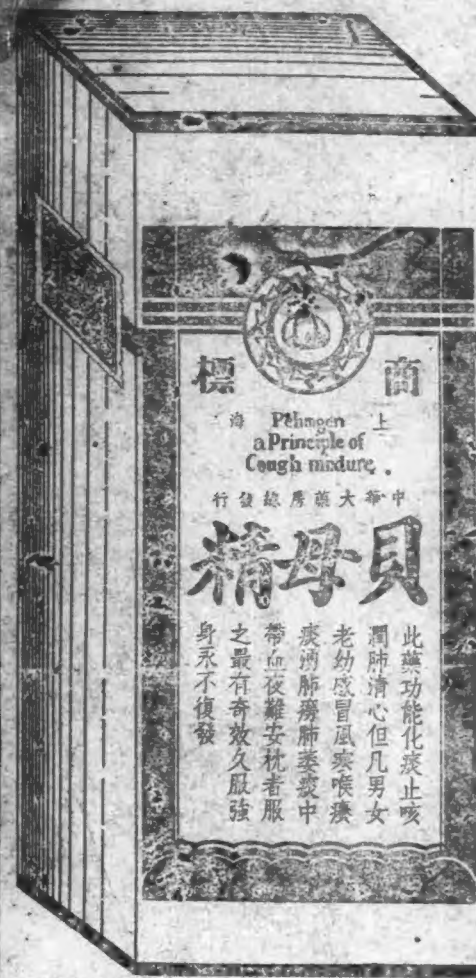 商標
上海
Pehmgen
a Principle of
Cough mixture
中華大藥房總發行
貝母精
此藥功能化痰止咳
潤肺清心但凡男女
老幼感冒風寒喉癢
痰滯肺癆肺萎痰中
帶血夜難安枕者服
之最有奇效久服強
身永不復發